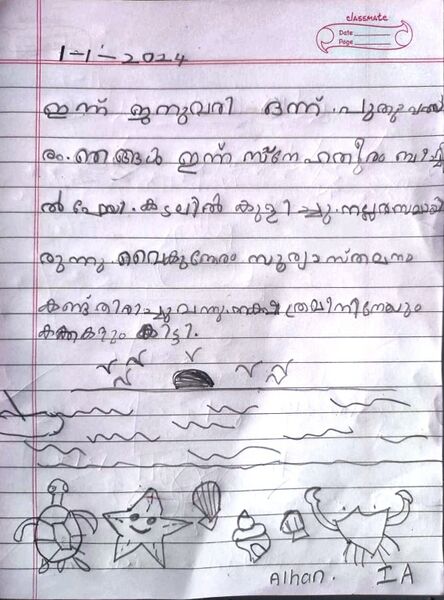 classmate
Date
Page
1-1-2024
ഇന്ന് ജനുവരി ഒന്ന്. പുതുവത്സ
രം. ഞങ്ങൾ ഇന്ന് സ്നേഹതീരം ബീച്ചി
ൽ പോയി. കടലിൽ കുളിച്ചു. നല്ല രസമായി
രുന്നു. വൈകുന്നേരം സൂര്യാസ്തമനം
കണ്ട് തിരിച്ചു വന്നു. നക്ഷത്രമീനിനേയും
കക്കകളും കിട്ടി.
Alhan.
I A